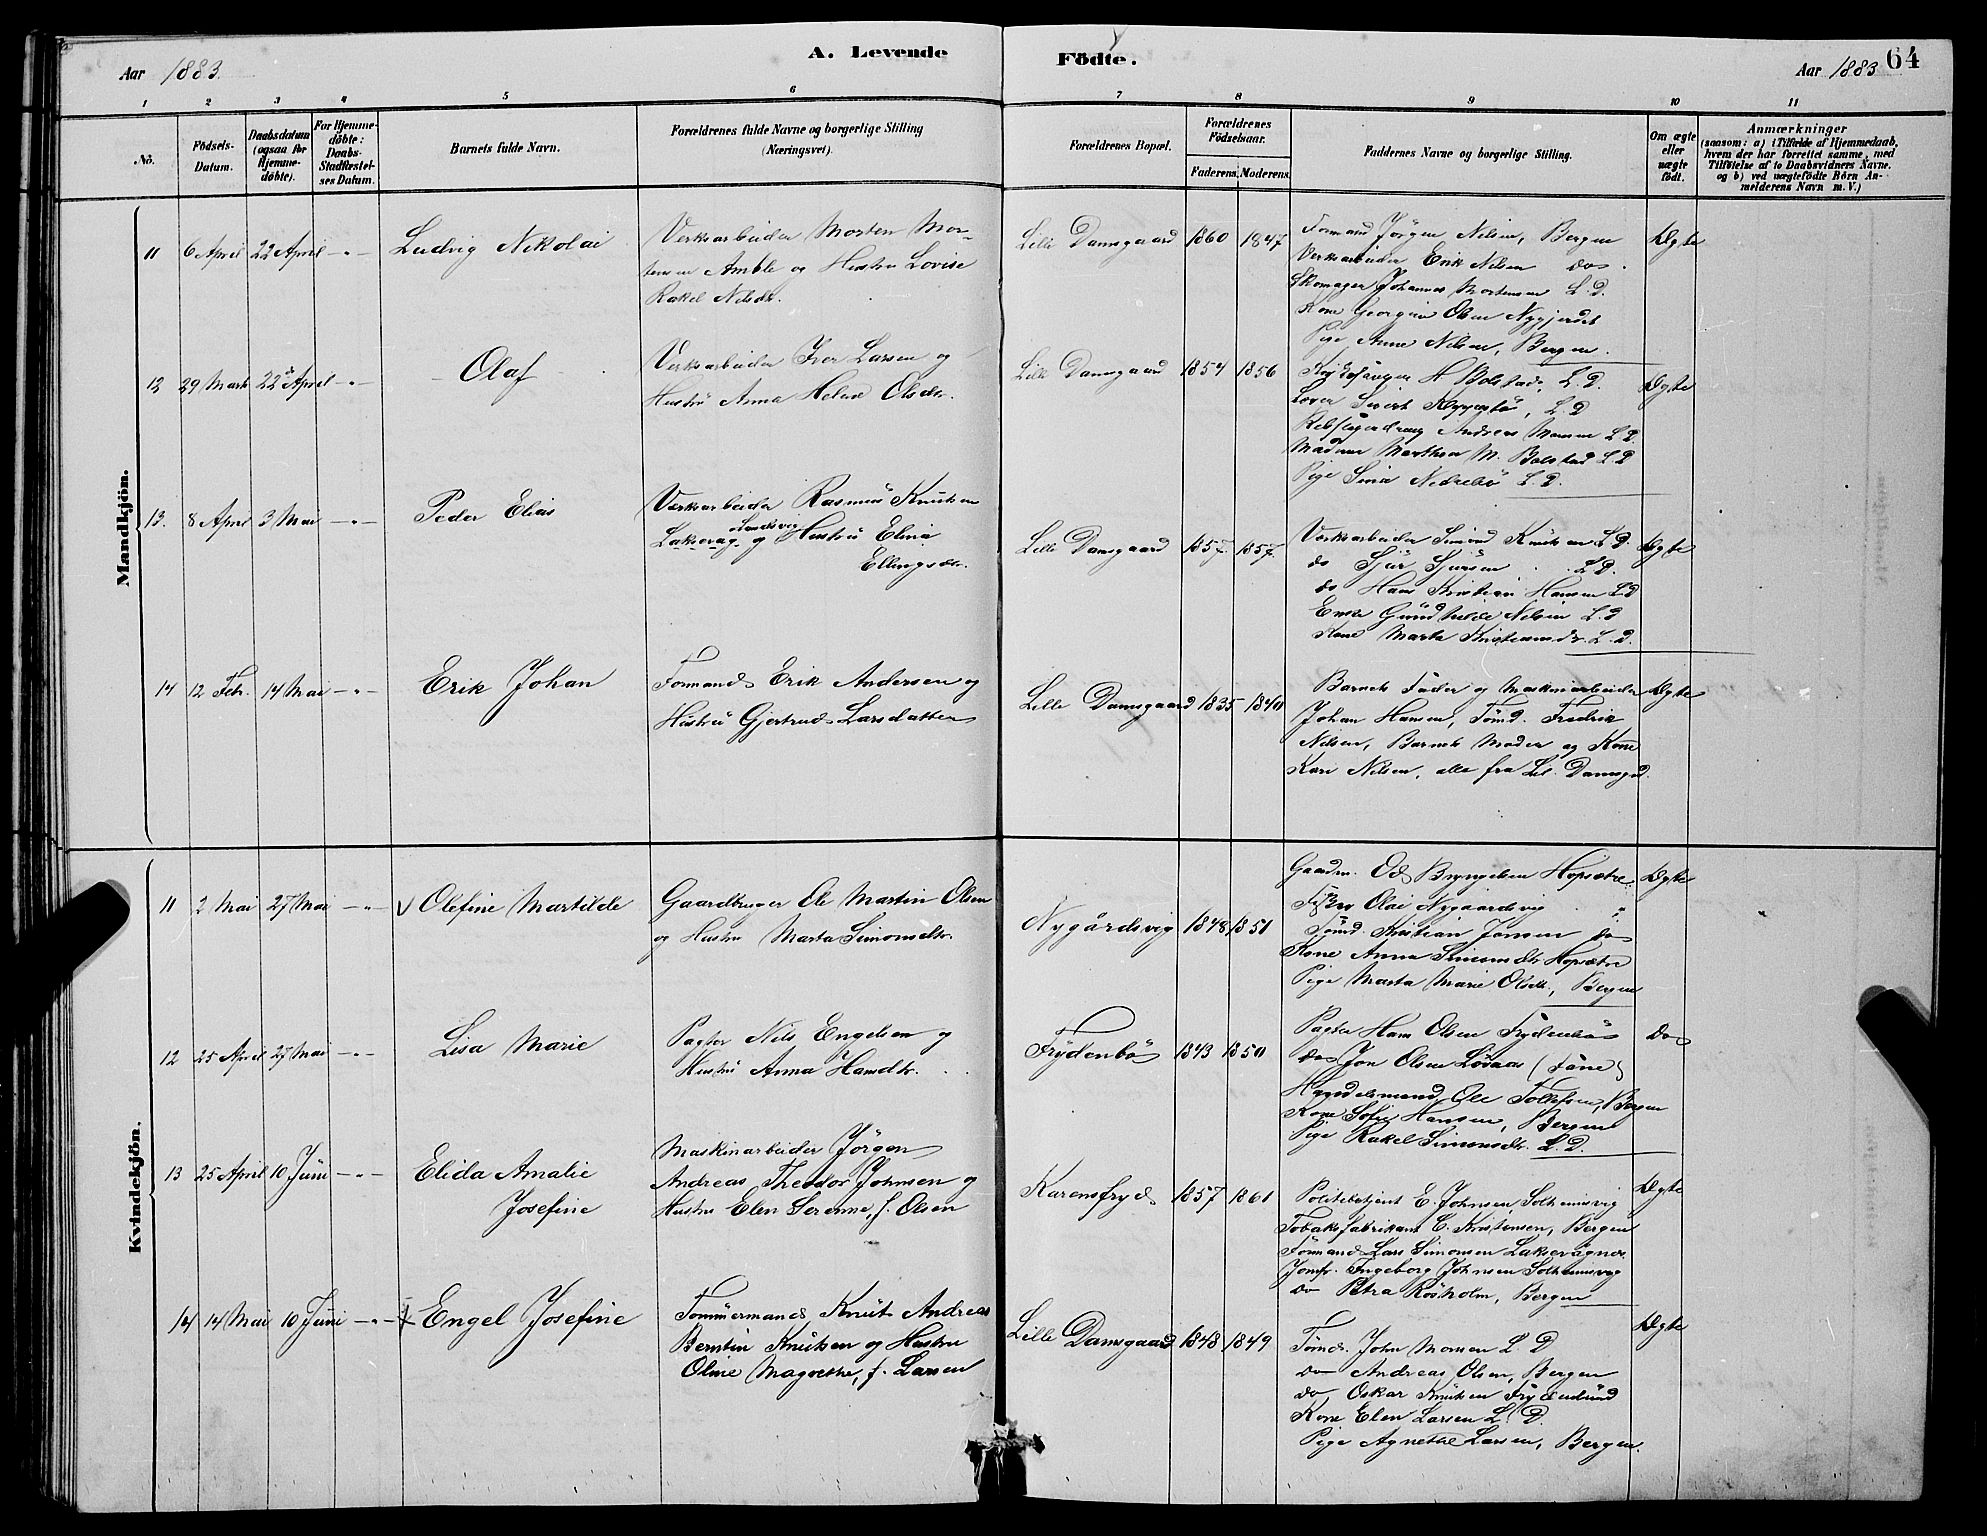 Aar 1883.
A. Levende
Födte.
Aar 1883
64
1 2 3 4 5 6 7 8 9 10 11
No.
Födsels-
Datum.
Daabsdatum
(ogsaa for
Hjemme-
döbte).
For Hjemme-
döbte:
Daabs-
Stadfæstel-
ses Datum.
Barnets fulde Navn.
Forældrenes fulde Navne og borgerlige Stilling
(Næringsvei).
Forældrenes Bopæl.
Forældrenes
Födselsaar.
Faderens. Moderens.
Faddernes Navne og borgerlige Stilling.
Om ægte
eller
uægte
födt.
Anmærkninger
(saasom: a) i Tilfælde af Hjemmedaab,
hvem der har forrettet samme, med
Tilföielse af to Daabsvidners Navne,
og b) ved uægtefödte Börn An-
melderens Navn m. V.)
Mandkjön.
11 6 April 22 April -"- Ludvig Nikolai
Verksarbeider Morten Mor-
tensen Amble og Hustru Lovise
Rakel Nilsdr.
Lille Damsgaard 1860 1847
Formand Jörgen Nilsen, Bergen
Verksarbeider Erik Nilsen do.
Skomager Johannes Mortensen L.D.
Kone Georgine Olsen Nygjerdet
Pige Anne Nilsen, Bergen.
Ægte
12 29 Marts 22 April -"- Olaf
Verksarbeider Iver Larsen og
Hustru Anna Helene Olsdr.
Lille Damsgaard 1854 1856
H Bolstad, L.D.
Lærer Sivert L.D
Rebslagerdreng Andreas Monsen L.D.
Madam Marthea M. Bolstad L.D
Pige Sina Nedrebö L.D.
Ægte
13. 8 April 3 Mai -"- Peder Elias
Verksarbeider Rasmus Knutsen
Sandvig
Laksevag og Hustru Elina
Ellingsdr.
Lille Damsgaard 1857. 1857.
Verksarbeider Simon Knutsen L.D.
do Sjur Sjursen L.D.
do Hans Kristian Hansen L.D
Enke Gundhilde Nilsen L.D
Kone Marta Kristiansdr. L.D.
Ægte
14 12 Febr. 14 Mai -"- Erik Johan
Formand Erik Andersen og
Hustru Gjertrud Larsdatter
Lille Damsgaard 1835 1840
Barnets Fader og Maskinarbeider
Johan Hansen, Tömd. Fredrik
Nilsen, Barnets Moder og Kone
Kari Nilsen, alle fra Lil. Damsgrd.
Ægte
Kvindekjön.
11 2 Mai 27 Mai -"- Olefine Martilde
Gaardbruger Ole Martin Olsen
og Hustru Marta Simonsdtr.
Nygårdsvig 1848 1851
Gaardm. Od Bryngelsen Hopsætre.
Olai Nygaardsvig "
Tömd. Kristian Jansen do
Kone Anna Simonsdtr Hopsætre
Pige Marta Marie Olsdtr, Bergen
Ægte
12 25 April 27 Mai -"- Lisa Marie
Pagter Nils Engelsen og
Hustru Anna Hansdtr.
Frydenbö 1843 1850
Pagter Hans Olsen Frydenbö
do Jon Olsen Lövaas (Fane)
Handelsmand Ole Tollefsen, Bergen
Kone Sofie Hansen, Bergen
Pige Rakel Simonsdtr. L.D.
do
13 25 April 10 Juni -"- Elida Amalie
Josefine
Maskinarbeider Jörgen
Andreas Theodor Johnsen og
Hustru Elen Serenne, f. Olsen
Karensfryd 1857 1861
Politibetjent E. Johnsen Solheimsvig
Tobaksfabrikant C. Kristensen, Bergen
Formand Lars Simonsen Laksevågnes
Jomfr. Ingeborg Johnsen Solheimsvig
do Petra Rösholm, Bergen
Ægte
14 14 Mai 10 Juni -"- Engel Josefine
Tömmermand Knut Andreas
Berntin Knutsen og Hustru
Oline Magrethe, f. Larsen
Lille Damsgaard 1848 1849
Tömd. John Monsen L D
do Andreas Olsen, Bergen
do, Oskar Knutsen Frydenlund
Kone Elen Larsen L.D.
Pige Agnethe Larsen, Bergen.
Ægte